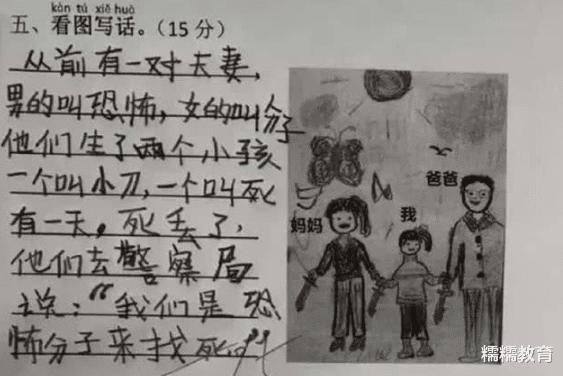 kàn tú xiě huà
五、看图写话。（15 分）
从前有一对夫妻，
男的叫恐怖，女的叫分子
他们生了两个小孩
一个叫小刀，一个叫死
有一天，死丢了，
他们去警察局
说：“我们是恐
怖分子来找死。”
妈妈
我
爸爸
糯糯教育